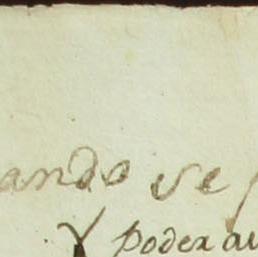 ando se
y poder au